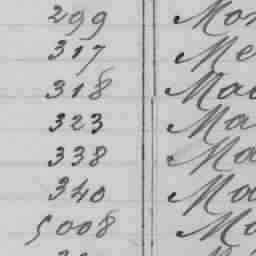 299 Mo
317 Me
318 Ma
323 Ma
338 Ma
340 Mo
5008 Mo